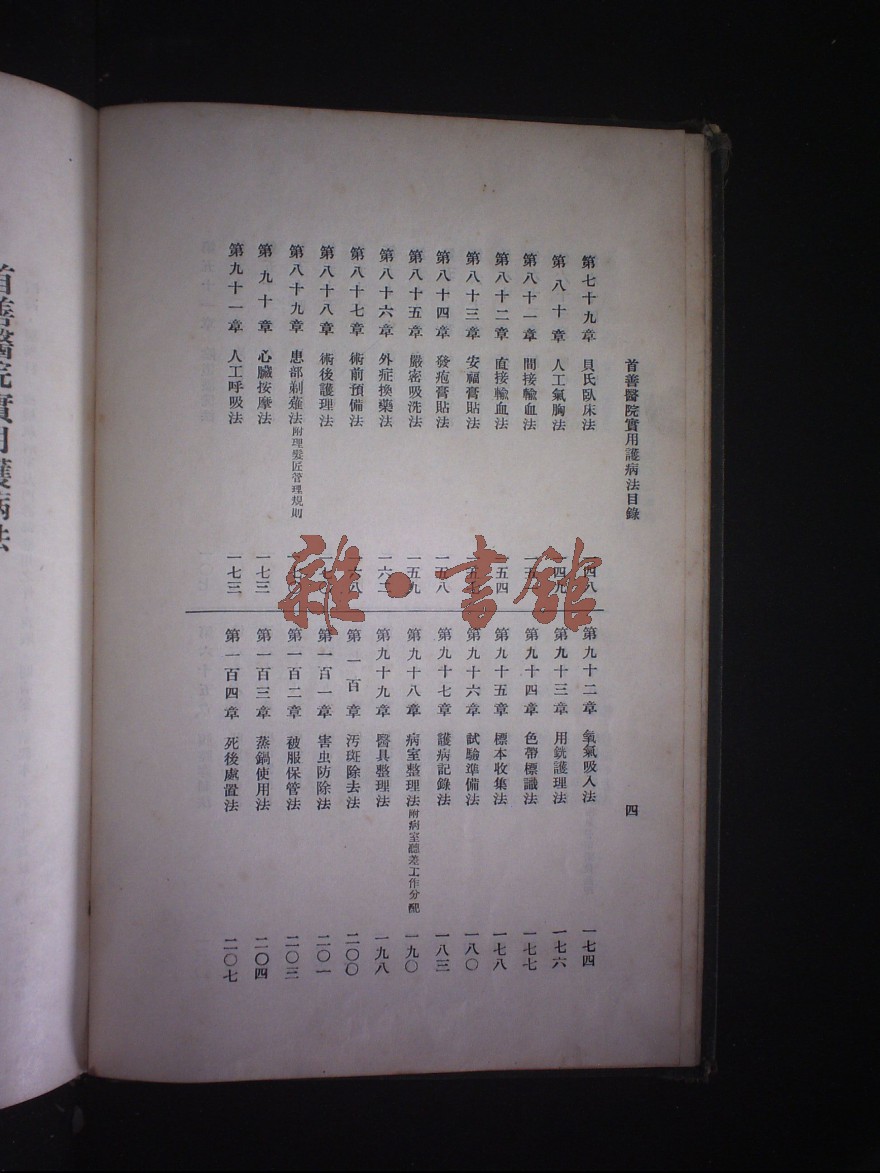 首善醫院實用護病法目錄
四
第七十九章 貝氏臥床法 一四八
第八十章 人工氣胸法 一四九
第八十一章 間接輸血法 一五
第八十二章 直接輸血法 一五四
第八十三章 安福膏貼法
第八十四章 發疱膏貼法 一五八
第八十五章 嚴密吸洗法 一五九
第八十六章 外症換藥法 一六二
第八十七章 術前預備法 一六八
第八十八章 術後護理法 一七
第八十九章 患部剃薙法附理髮匠管理規則 一七
第九十章 心臟按摩法 一七三
第九十一章 人工呼吸法 一七三
第九十二章 氧氣吸入法 一七四
第九十三章 用銧護理法 一七六
第九十四章 色帶標識法 一七七
第九十五章 標本收集法 一七八
第九十六章 試驗準備法 一八〇
第九十七章 護病記錄法 一八三
第九十八章 病室整理法附病室聽差工作分配 一九〇
第九十九章 醫具整理法 一九八
第一百章 污斑除去法 二〇〇
第一百一章 害虫防除法 二〇一
第一百二章 被服保管法 二〇三
第一百三章 蒸鍋使用法 二〇四
第一百四章 死後處置法 二〇七
首善醫院實用護病法
雜·書館